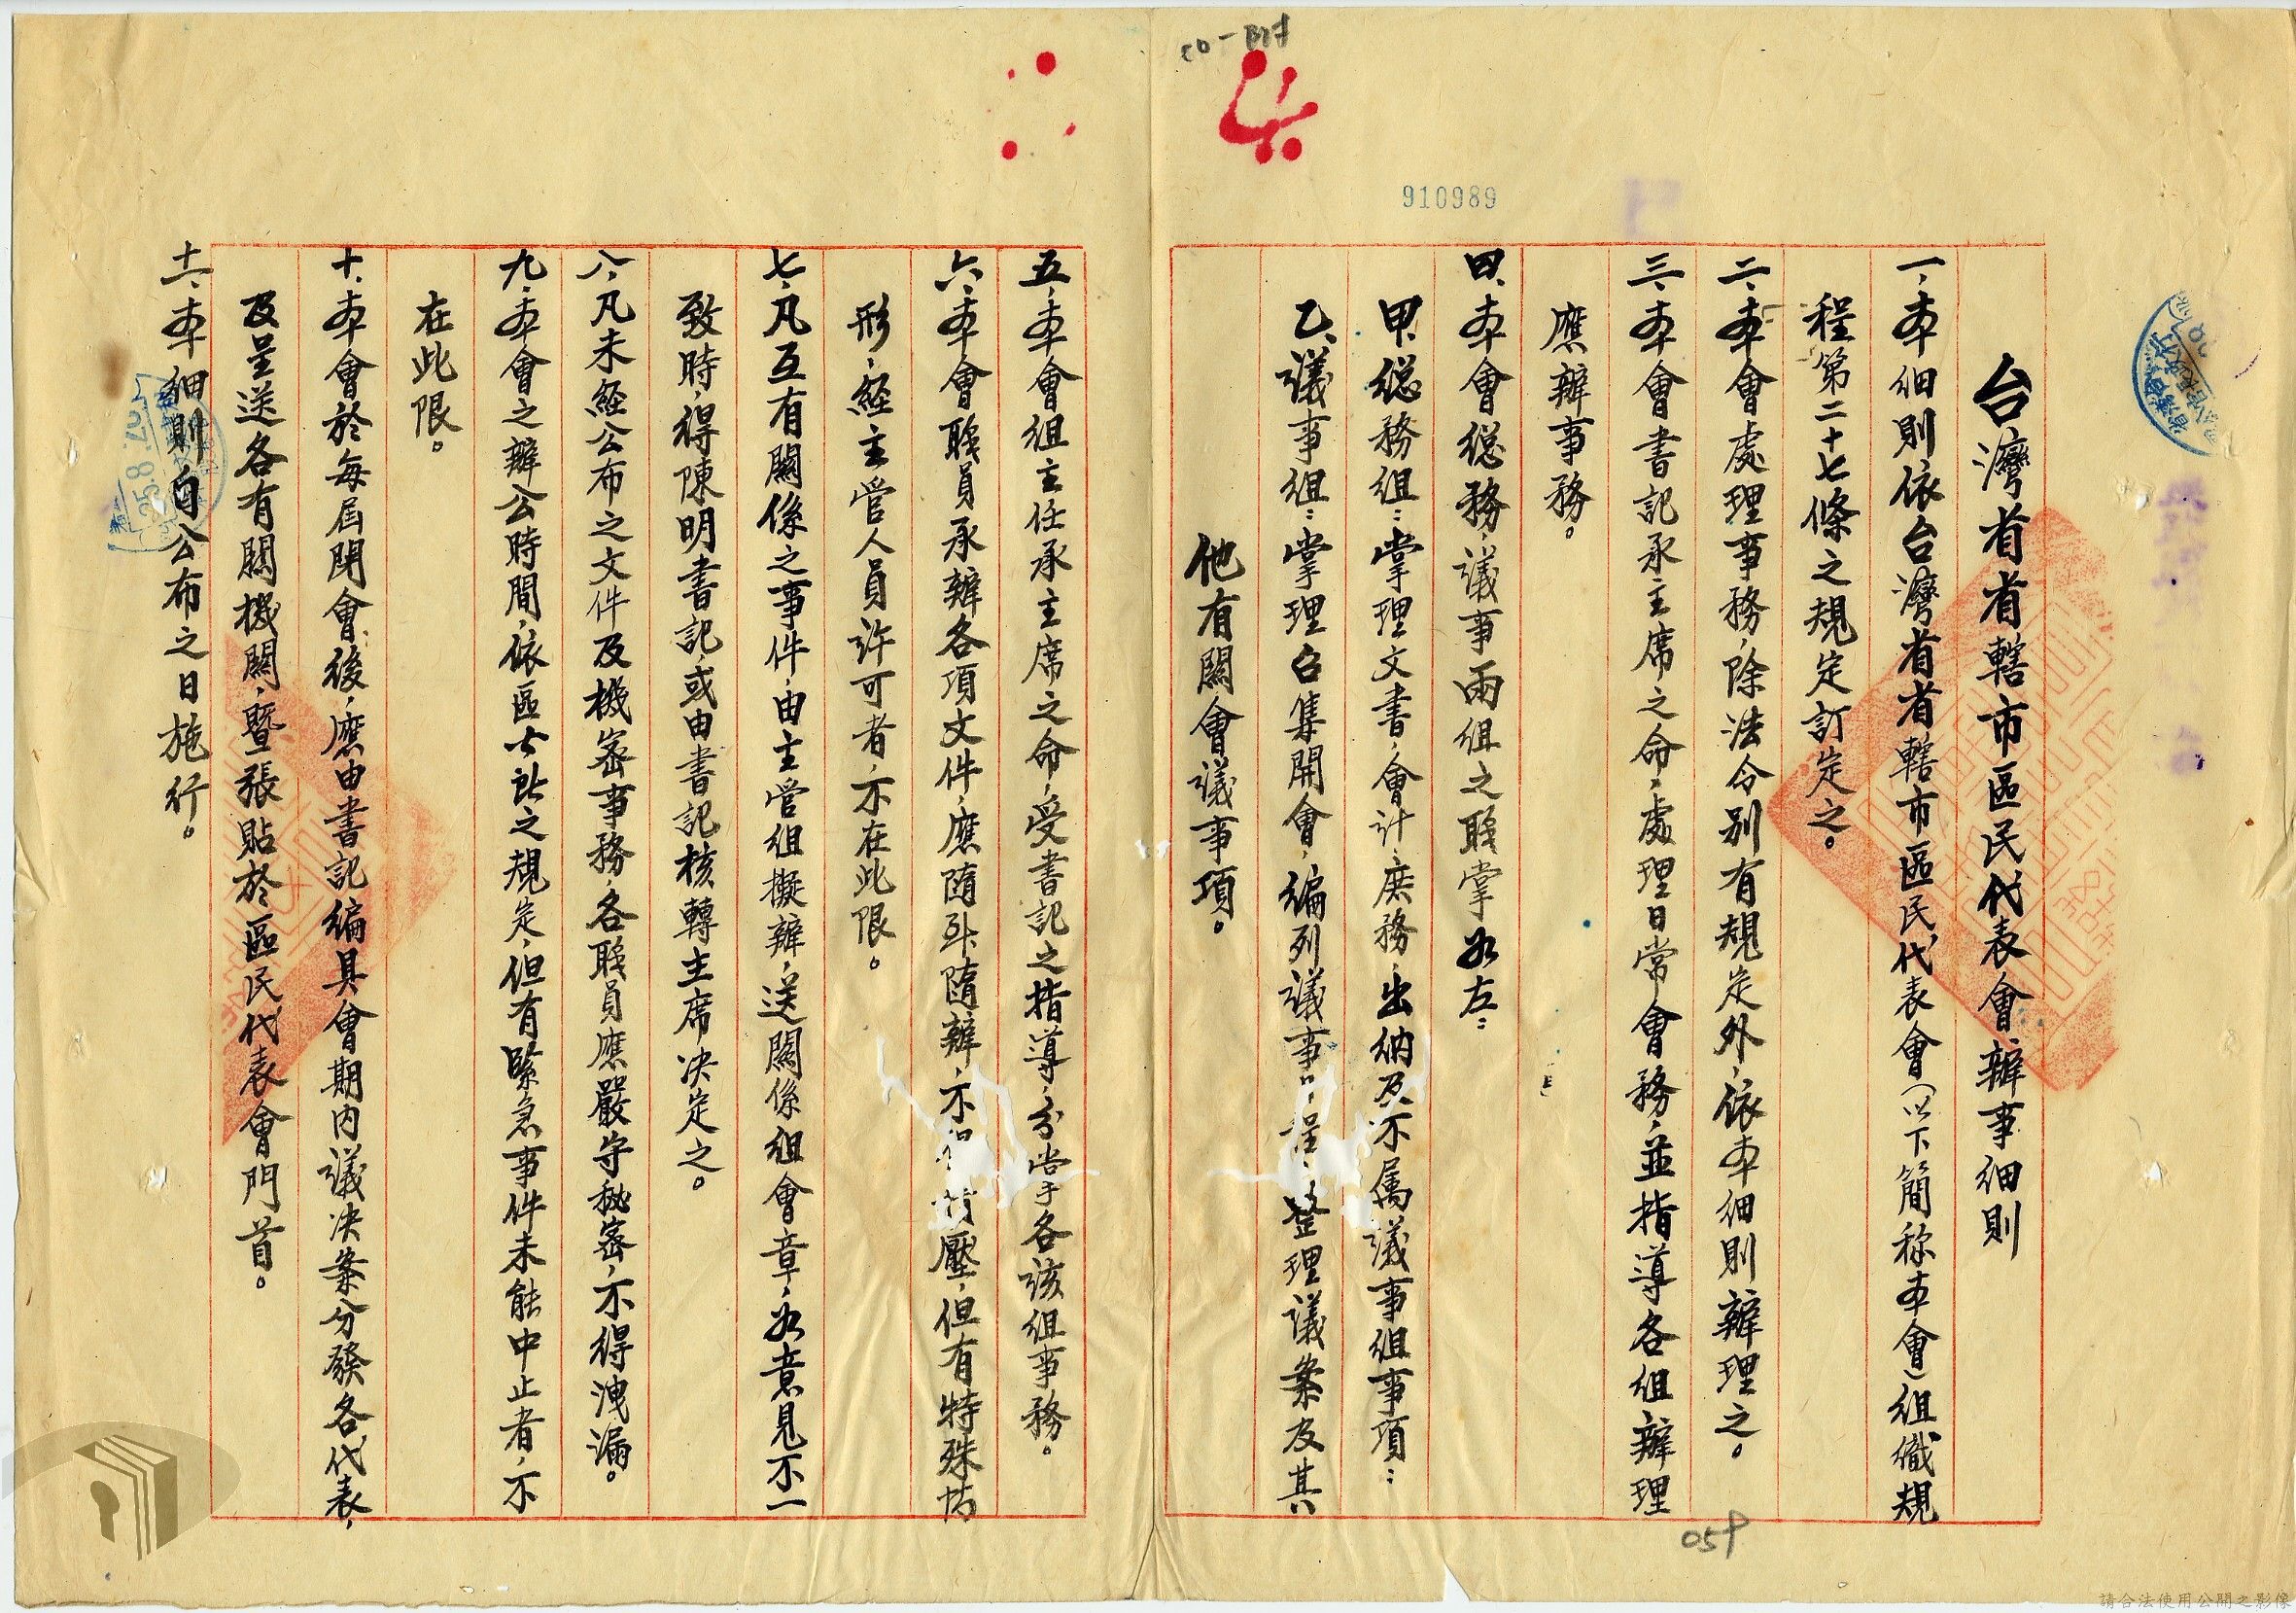 910989
台灣省省轄市區民代表會辦事細則
一、本細則依台灣省省轄市區民代表會（以下簡称本會）組織規
程第二十七條之規定訂定之。
二、本會處理事務，除法令別有規定外，依本細則辦理之。
三、本會書記承主席之命，處理日常會務，並指導各組辦理
應辦事務。
四、本會総務，議事兩組之職掌如左：
甲、総務組：掌理文書，會計，庶務，出納及不屬議事組事項：
乙、議事組：掌理召集開會，編列議事日程，整理議案及其
他有關會議事項。
五、本會組主任承主席之命，受書記之指導，分掌各該組事務。
六、本會職員承辦各項文件，應隨到隨辦，不得積壓，但有特殊情
形，経主管人員許可者，不在此限。
七、凡互有關係之事件，由主管組擬辦，送關係組會章，如意見不一
致時，得陳明書記，或由書記核轉主席决定之。
八、凡未経公布之文件及機密事務，各職員應嚴守秘密，不得洩漏。
九、本會之辦公時間，依區公所之規定，但有緊急事件未能中止者，不
在此限。
十、本會於每屆開會後，應由書記編具會期內議决案分發各代表，
及呈送各有關機關，暨張貼於區民代表會門首。
十一、本細則自公布之日施行。
059
35.8.27
請合法使用公開之影像